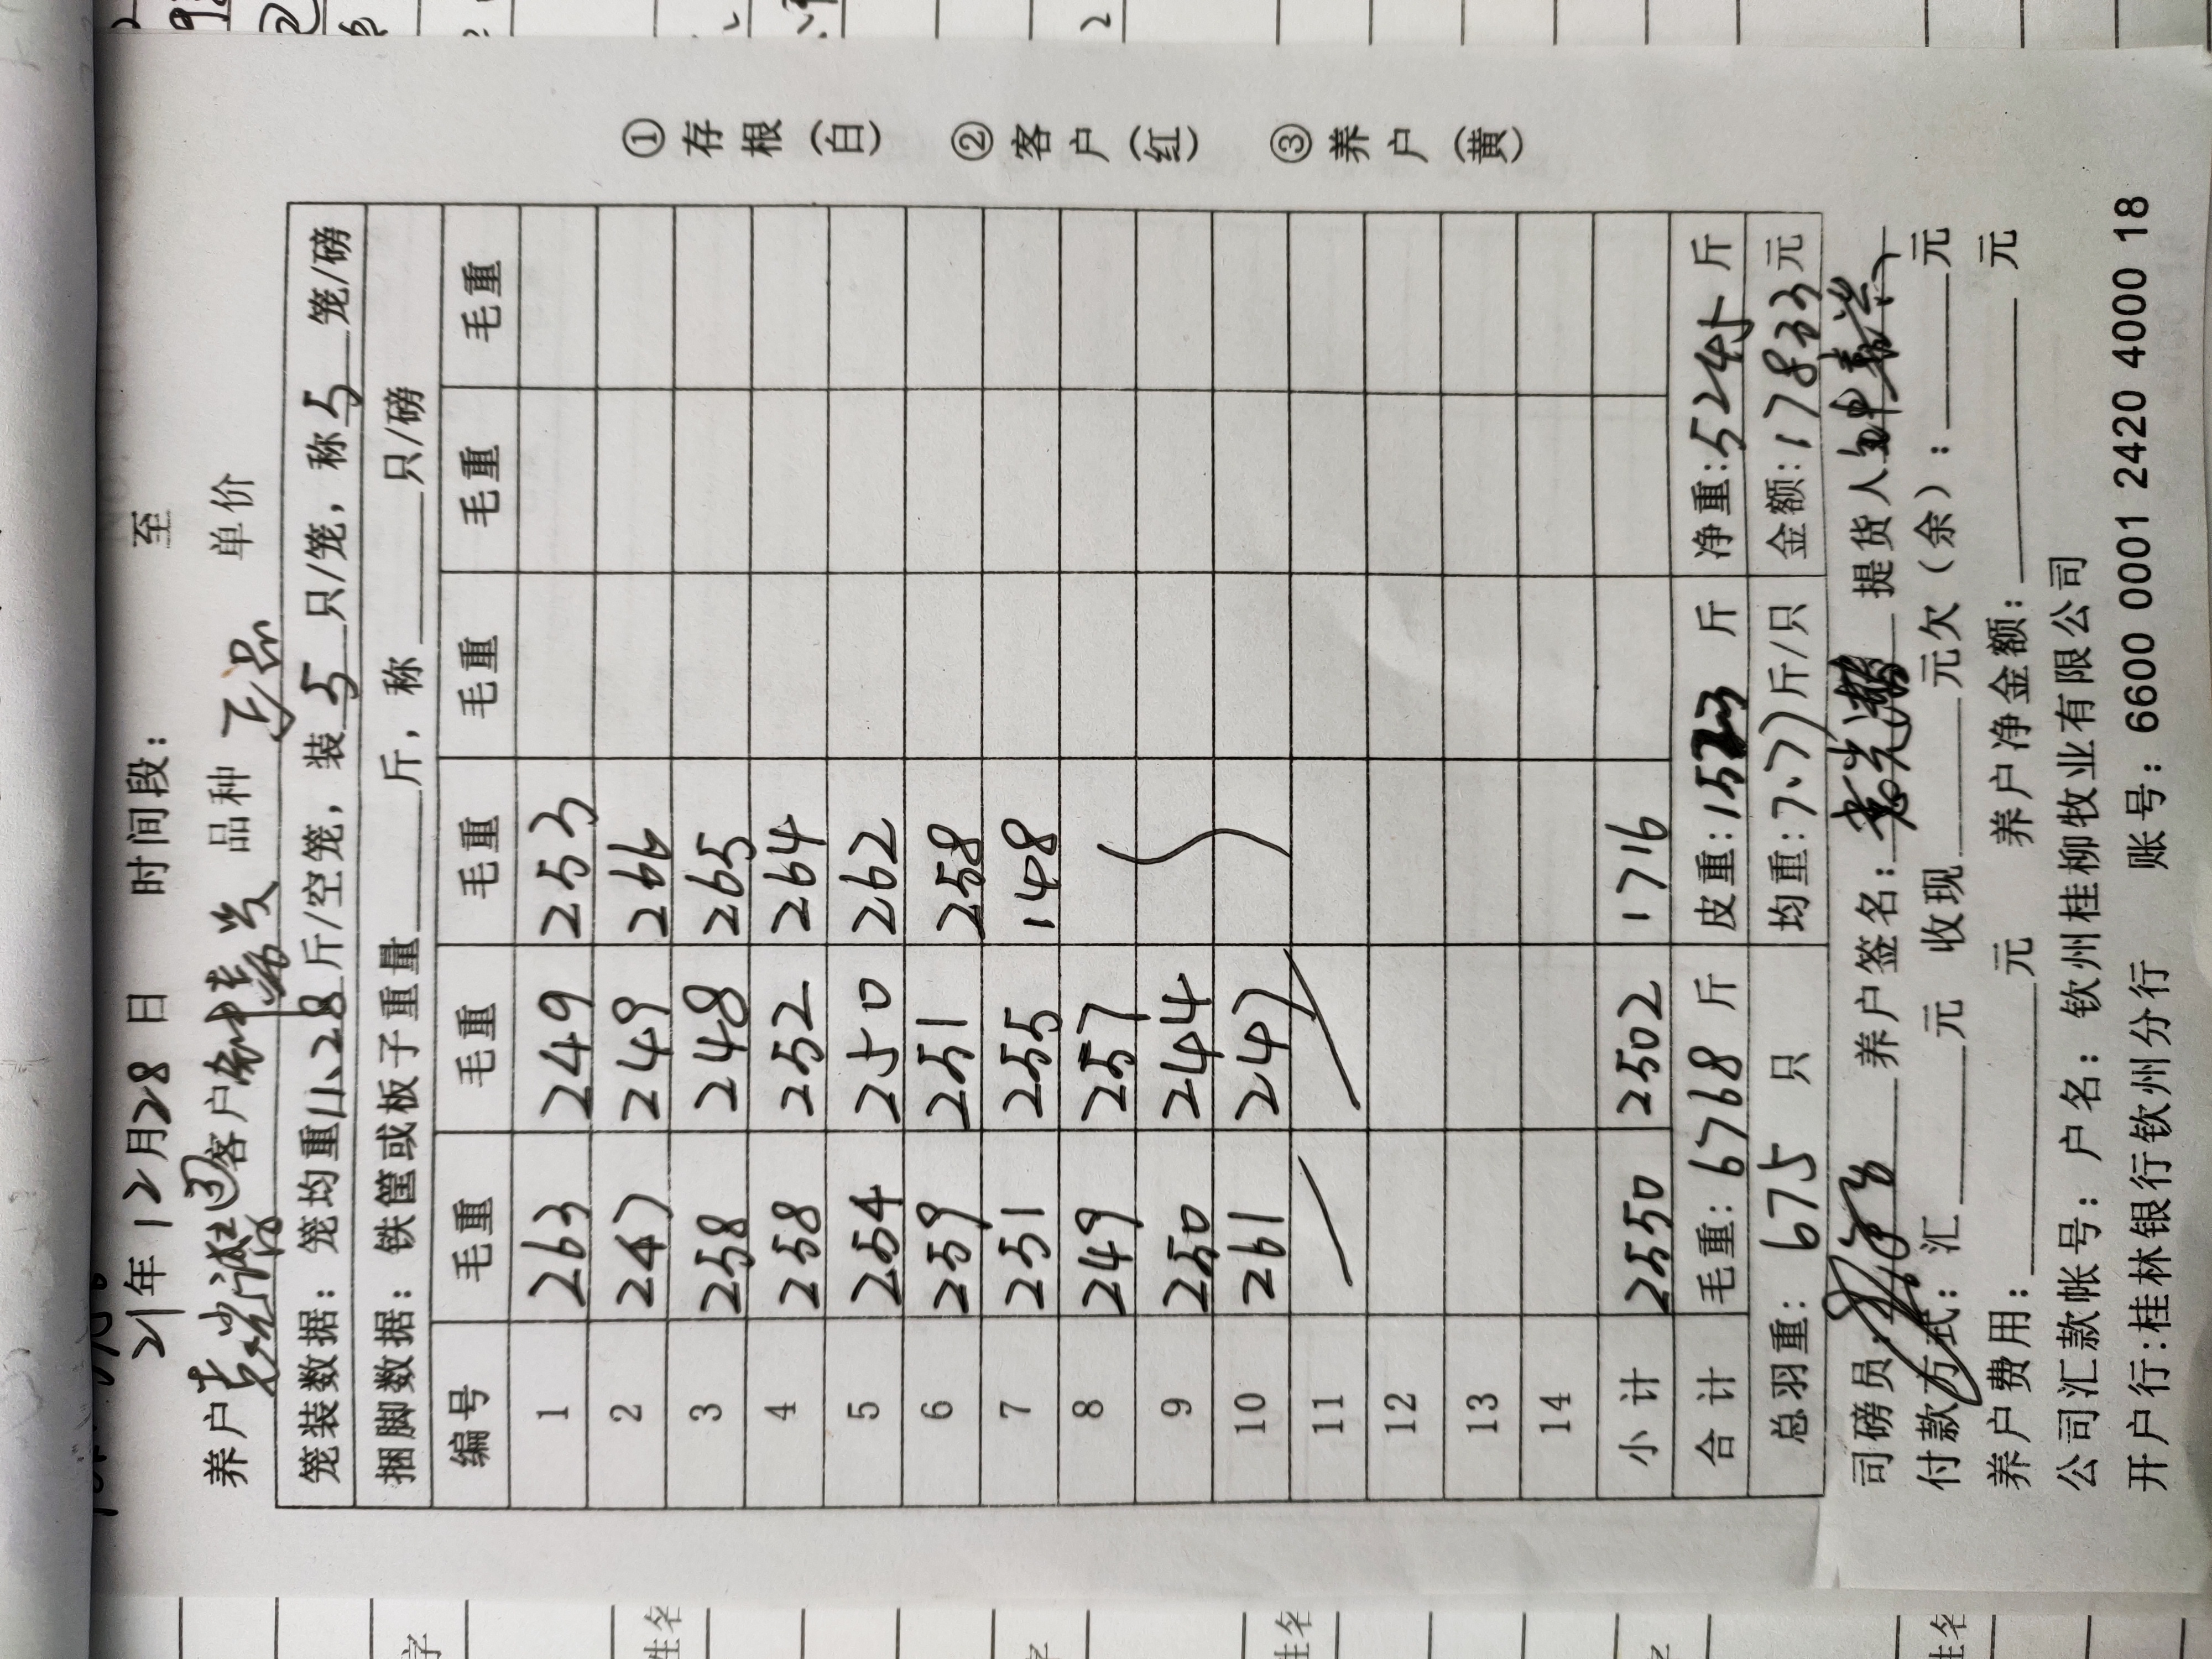 21年12月28日 时间段: 至
养户 客户 品种 正品 单价
笼装数据: 笼均重11.28斤/空笼, 装5只/笼, 称5笼/磅
捆脚数据: 铁筐或板子重量 斤, 称 只/磅
编号 毛重 毛重 毛重 毛重 毛重 毛重
1 263 249 253
2 247 249 266
3 258 248 265
4 258 252 264
5 254 250 262
6 259 251 258
7 251 255 148
8 249 257
9 250 244
10 261 247
11
12
13
14
小计 2550 2502 1716
合计 毛重: 6768 斤 皮重: 1523 斤 净重: 5245 斤
总羽重: 675 只 均重: 7.77斤/只 金额: 17833元
司磅员: 养户签名: 提货人
付款方式: 汇 元 收现 元欠(余): 元
养户费用: 元 养户净金额: 元
公司汇款帐号: 户名: 钦州桂柳牧业有限公司
开户行:桂林银行钦州分行 账号: 6600 0001 2420 4000 18
①存根(白) ②客户(红) ③养户(黄)